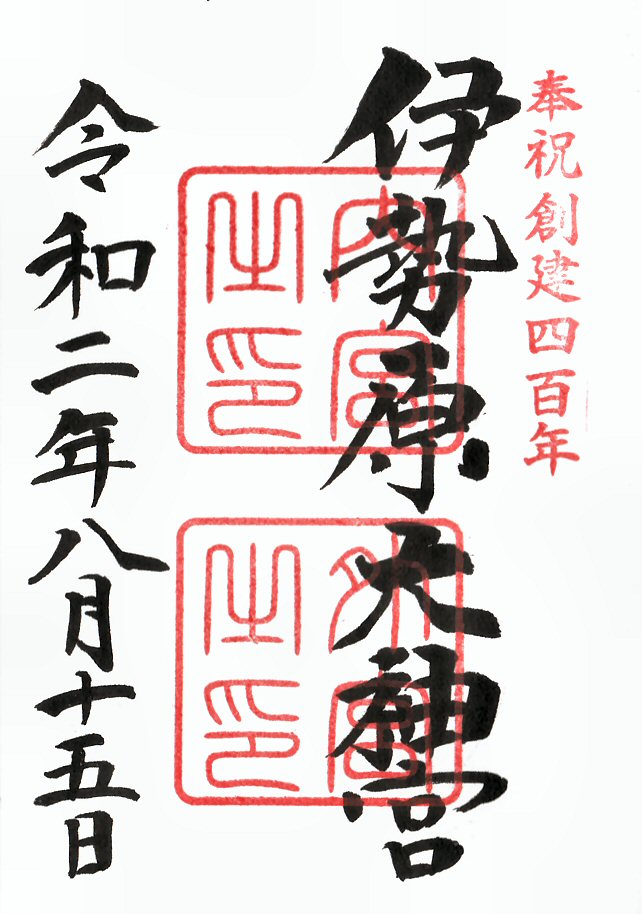 奉祝創建四百年
伊勢原大神宮
内宮之印
外宮之印
令和二年八月十五日